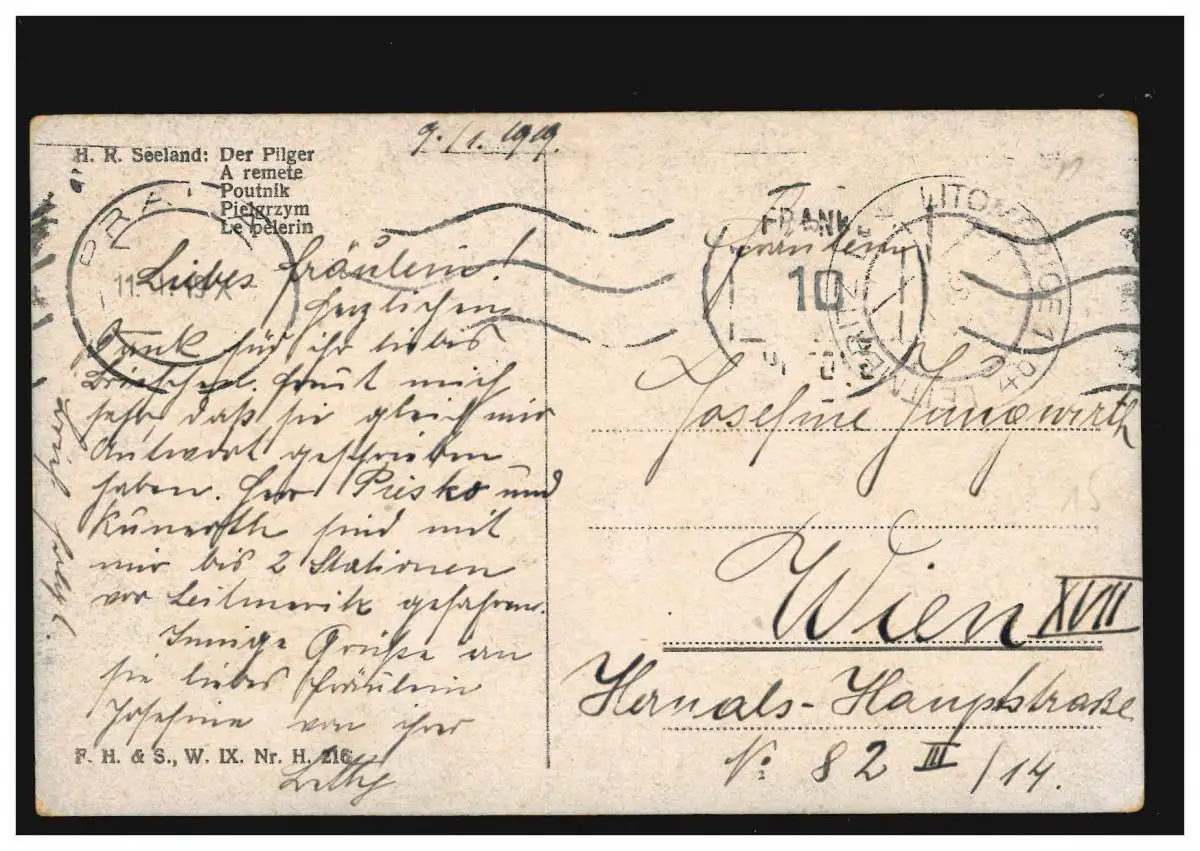 9./1. 1919.
H. R. Seeland: Der Pilger
A remete
Poutnik
Pielgrzym
Le pelerin
PRAHA
11.
Liebes Fräulein!
Herzlichen
Dank für ihr liebes
Briefchen. Freut mich
sehr daß sie gleich mir
Antwort geschrieben
haben. Herr Piesko und
Kunerth sind mit
mir bis 2 Stationen
vor Leitmeritz gefahren.
Innige Grüße an
sie liebes Fräulein
Josefine von ihrer
Lilly
F. H. & S., W. IX. Nr. H. 216.
FRANK
10
LITOMĚŘICE 1
LEITMERITZ
Fräulein
Josefine Jungwirth
Wien XVII
Hernals-Hauptstraße
No: 82 III/14.
15